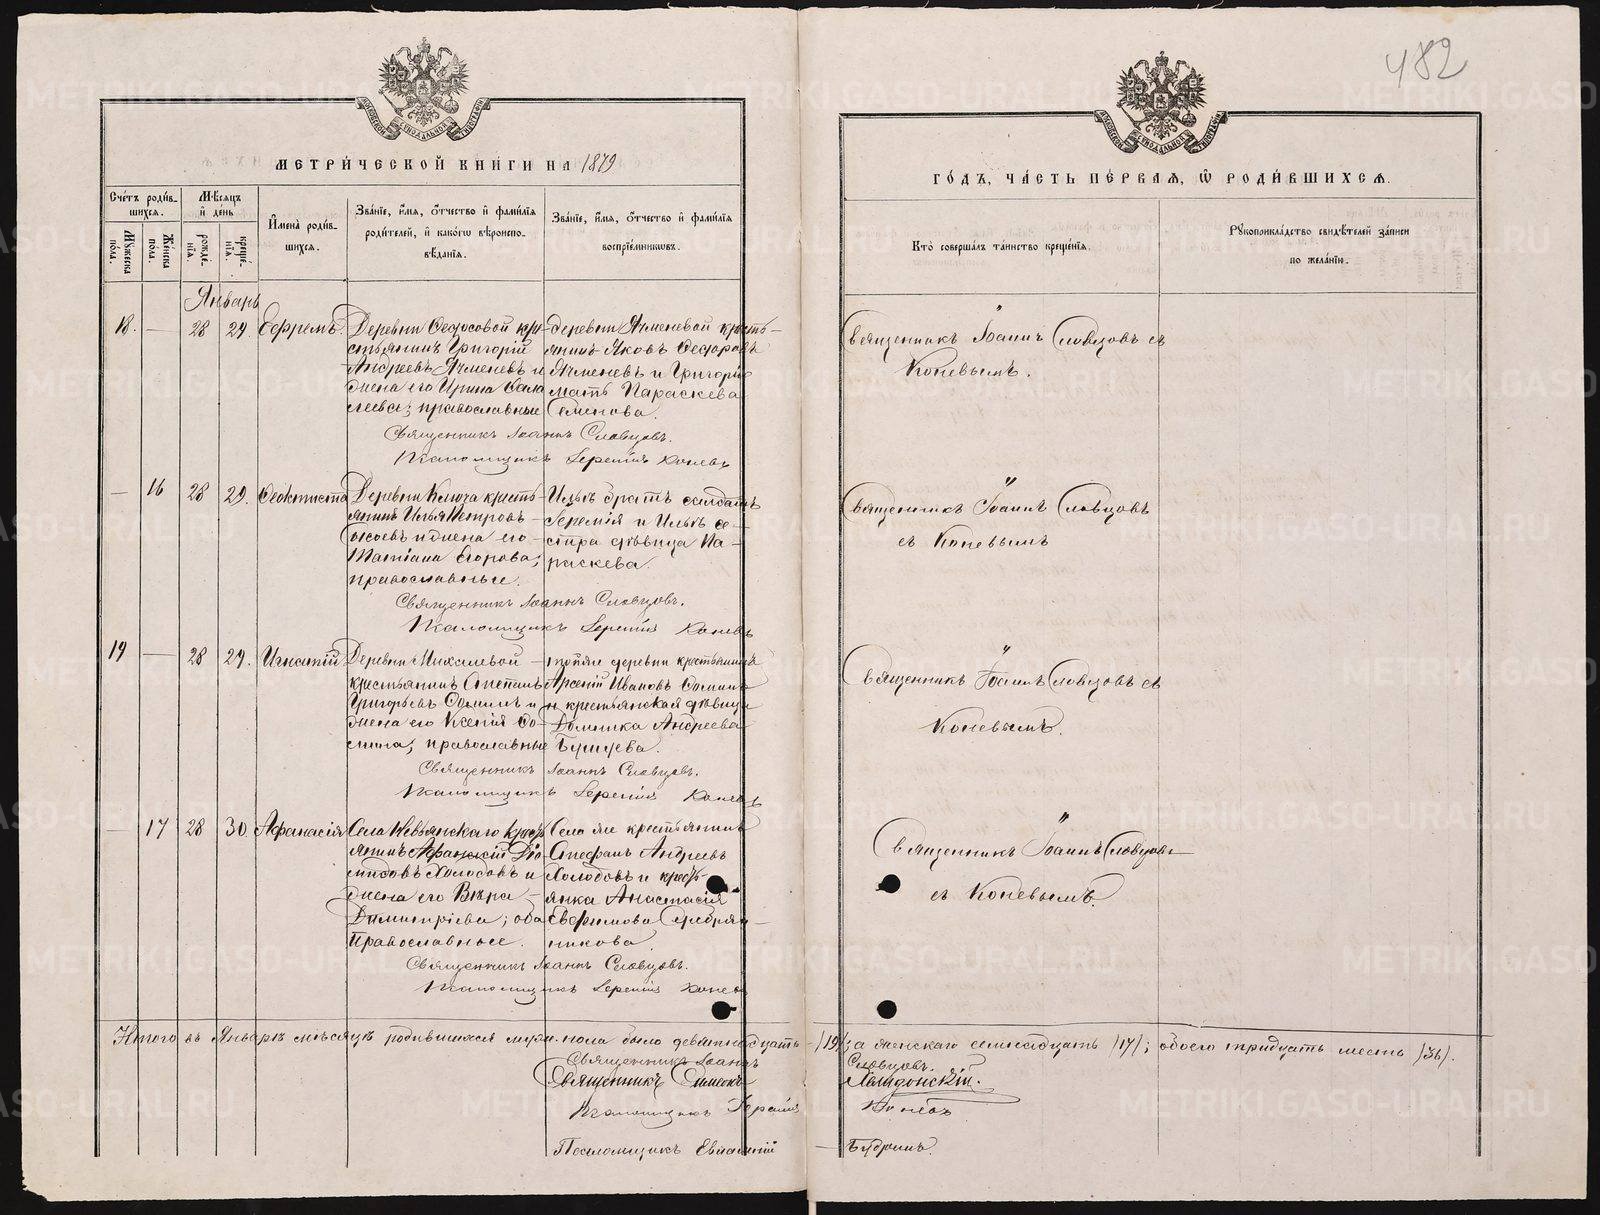 482
МЕТРИ́ЧЕСКОЙ КНИ́ГИ НА 1879
ГО́ДЪ, ЧА́СТЬ ПЕ́РВАЯ, Ѡ҆ РОДИ́ВШИХСЯ.
Сче́тъ роди́в-
шихся.
Му́жеска
по́ла.
Же́нска
по́ла.
Мѣ́сяцъ
и҆ день
рожде́-
нїя.
креще́-
нїя.
И҆мена̀ роди́в-
шихся.
Зва́нїе, и҆́мя, о҆́тчество и҆ фами́лїя
роди́телей, и҆ како́гѡ вѣроиспо-
вѣ́данїя.
Зва́нїе, и҆́мя, о҆́тчество и҆ фами́лїя
воспрїе́мникѡвъ.
Кто̀ соверша́лъ та́инство креще́нїя.
Рꙋкоприкла́дство свидѣ́телей за́писи
по жела́нїю.
Январь
18. — 28 29 Ефремъ.
Деревни Ѳедосовой кре-
стьянинъ Григорій
Андреевъ Ячменевъ и
жена его Ирина
православные
деревни Ячменевой кресть-
янинъ Яковъ Ѳедоровъ
Ячменевъ и Григорія
мать Параскева
Семенова.
Священникъ Іоаннъ Словцовъ съ
Коневымъ.
Священникъ Іоаннъ Словцовъ.
Псаломщикъ Іеремія Коневъ
— 16 28 29. Ѳеоктиста
Деревни Ключа кресть-
янинъ Илья Петровъ
и жена его
Татіана Егорова;
православные.
Ильѣ братъ солдатъ
Іеремія и Ильѣ се-
стра дѣвица Па-
раскева.
Священникъ Іоаннъ Словцовъ
съ Коневымъ
Священникъ Іоаннъ Словцовъ.
Псаломщикъ Іеремія Коневъ
19 — 28 29. Игнатій
Деревни Михалевой
крестьянинъ Степанъ
Григорьевъ Соминъ и
жена его Ксенія Со-
мина; православные
тойже деревни крестьянинъ
Арсеній Ивановъ Соминъ
и крестьянская дѣвица
Домника Андреева
Бушуева.
Священникъ Іоаннъ Словцовъ съ
Коневымъ.
Священникъ Іоаннъ Словцовъ.
Псаломщикъ Іеремія Коневъ
— 17 28 30. Афанасія
Села Невьянскаго крест-
янинъ Афанасій Діо-
мидовъ Холодовъ и
жена его Вѣра
Димитріева; оба
Православные.
Села же крестьянинъ
Стефанъ Андреевъ
Холодовъ и кресть-
янка Анастасія
Евфимова Серебрян-
никова
Священникъ Іоаннъ Словцовъ
съ Коневымъ.
Священникъ Іоаннъ Словцовъ.
Псаломщикъ Іеремія Коневъ
Итого въ Январѣ мѣсяцѣ родившихся муж. пола было девятнадцать /19/; а женскаго семнадцать /17/; обоего тридцать шесть /36/.
Священникъ Іоаннъ Словцовъ.
Священникъ Симеонъ Хлыдонскій.
Псаломщикъ Іеремія Коневъ
Псаломщикъ Евѳимій — Бабринъ.